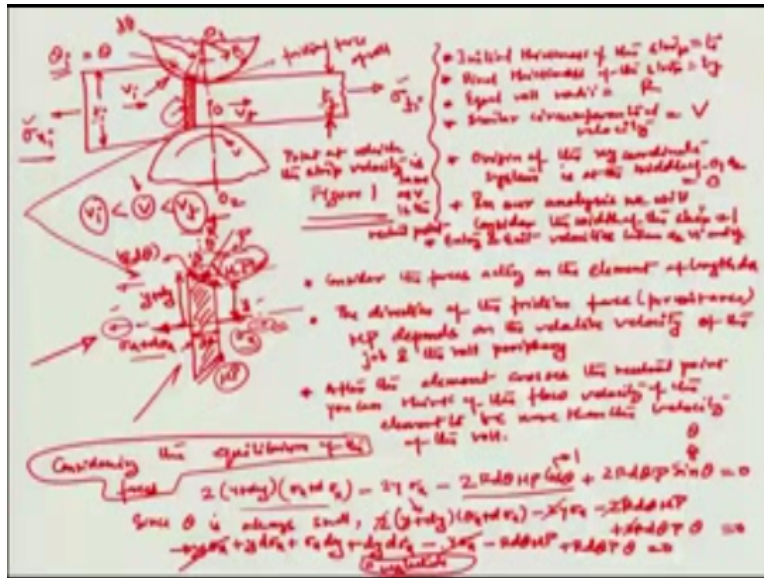 dθ
O₁
θi = θ
R
friction force
Vi
Vf
ti
tf
σxi
σxf
O
O₂
Point at which
the strip velocity is
Figure 1
same
as V
is the
neutral point
Vi < V < Vf
• Initial thickness of the strip = ti
• Final thickness of the strip = tf
• Equal roll radii = R
• Similar circumferential
velocity = V
• Origin of the xy coordinate
system is at the middle of O₁O₂
= O
• In our analysis we will
consider the width of the strip = 1
• Entry & exit velocities taken as Vi and Vf
(Rdθ)
P
μP
y+dy
y
σx+dσx
σx
μP
• Consider the forces acting on the element of length dx
• The direction of the friction force (pressure)
μP depends on the relative velocity of the
job & the roll periphery
• After the element crosses the neutral point
you can think of the flow velocity of the
element to be more than the velocity
of the roll.
Considering the equilibrium of the
forces
2(y+dy)(σx+dσx) - 2yσx - 2Rdθ μP Cosθ + 2RdθP Sinθ = 0
Since θ is always small, 2(y+dy)(σx+dσx) - 2yσx - 2RdθμP
+ 2RdθP θ = 0
yσx + ydσx + σxdy + dydσx - yσx - RdθμP + RdθP θ = 0